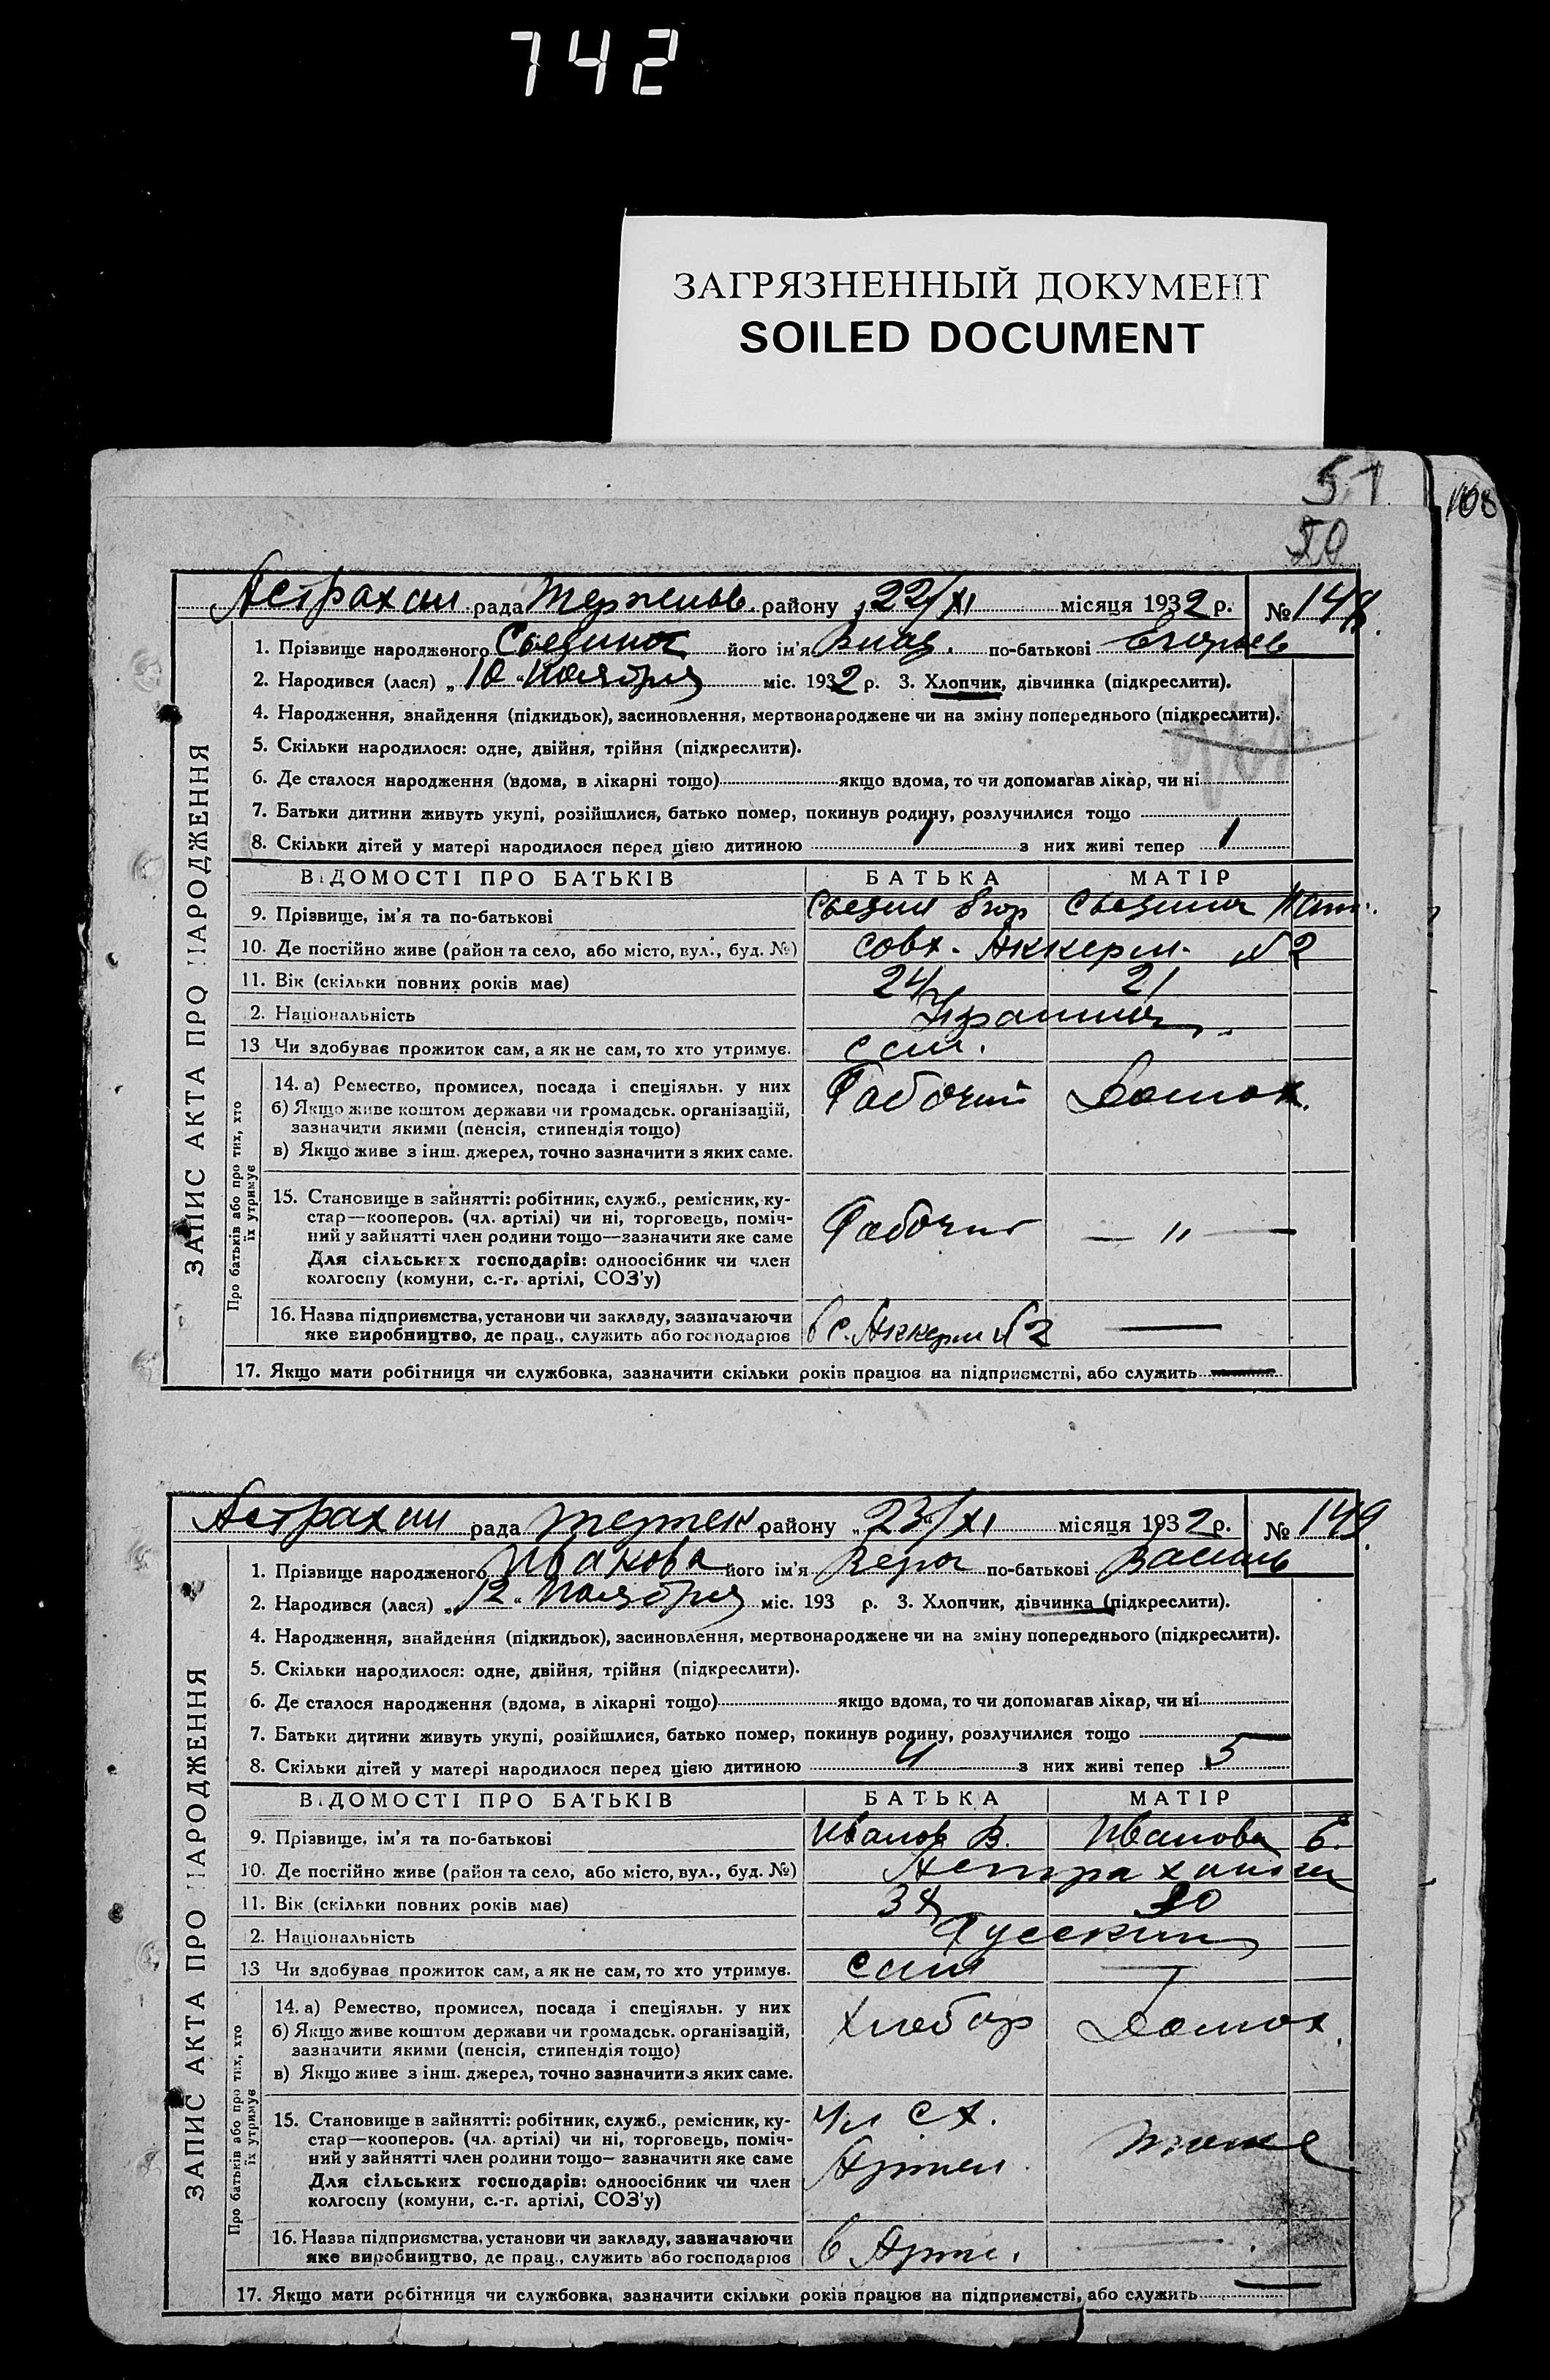 742
ЗАГРЯЗНЕННЫЙ ДОКУМЕНТ
SOILED DOCUMENT
51
108
ЗАПИС АКТА ПРО НАРОДЖЕННЯ
Астрахан рада район у 22/XI місяця 1932 р. № 148
1. Прізвище народженого його ім'я Влад. по-батькові Егоров
2. Народився (лася) „10" Ноября міс. 1932 р. 3. Хлопчик, дівчинка (підкреслити).
4. Народження, знайдення (підкидьок), засиновлення, мертвонароджене чи на зміну попереднього (підкреслити).
5. Скільки народилося: одне, двійня, трійня (підкреслити).
6. Де сталося народження (вдома, в лікарні тощо) якщо вдома, то чи допомагав лікар, чи ні
7. Батьки дитини живуть укупі, розійшлися, батько помер, покинув родину, розлучилися тощо
8. Скільки дітей у матері народилося перед цією дитиною 1 з них живі тепер 1
ВІДОМОСТІ ПРО БАТЬКІВ БАТЬКА МАТІР
9. Прізвище, ім'я та по-батькові Егор
10. Де постійно живе (район та село, або місто, вул., буд. №) совх. Аккерм. №2
11. Вік (скільки повних років має) 24 21
2. Національність
13 Чи здобуває прожиток сам, а як не сам, то хто утримує. сам.
Про батьків або про тих, хто їх утримує
14. а) Ремество, промисел, посада і спеціяльн. у них Рабочий Домох.
б) Якщо живе коштом держави чи громадськ. організацій,
зазначити якими (пенсія, стипендія тощо)
в) Якщо живе з інш. джерел, точно зазначити з яких саме.
15. Становище в зайнятті: робітник, служб., ремісник, ку-
стар—кооперов. (чл. артілі) чи ні, торговець, поміч- Рабочий — „ —
ний у зайнятті член родини тощо—зазначити яке саме
Для сільських господарів: одноосібник чи член
колгоспу (комуни, с.-г. артілі, СОЗ'у)
16. Назва підприємства, установи чи закладу, зазначаючи
яке виробництво, де прац., служить або господарює в с. Аккерм №2 —
17. Якщо мати робітниця чи службовка, зазначити скільки років працює на підприємстві, або служить —
ЗАПИС АКТА ПРО НАРОДЖЕННЯ
Астрахан рада район у „23/XI місяця 1932 р. № 149
1. Прізвище народженого Иванова його ім'я Вера по-батькові Василь
2. Народився (лася) „12" Ноября міс. 193 р. 3. Хлопчик, дівчинка (підкреслити).
4. Народження, знайдення (підкидьок), засиновлення, мертвонароджене чи на зміну попереднього (підкреслити).
5. Скільки народилося: одне, двійня, трійня (підкреслити).
6. Де сталося народження (вдома, в лікарні тощо) якщо вдома, то чи допомагав лікар, чи ні
7. Батьки дитини живуть укупі, розійшлися, батько помер, покинув родину, розлучилися тощо
8. Скільки дітей у матері народилося перед цією дитиною 4 з них живі тепер 5
ВІДОМОСТІ ПРО БАТЬКІВ БАТЬКА МАТІР
9. Прізвище, ім'я та по-батькові Иванов В. Иванова Е.
10. Де постійно живе (район та село, або місто, вул., буд. №)
11. Вік (скільки повних років має)
2. Національність Русские
13 Чи здобуває прожиток сам, а як не сам, то хто утримує. сам —
Про батьків або про тих, хто їх утримує
14. а) Ремество, промисел, посада і спеціяльн. у них Хлебор Домох.
б) Якщо живе коштом держави чи громадськ. організацій,
зазначити якими (пенсія, стипендія тощо)
в) Якщо живе з інш. джерел, точно зазначити з яких саме.
15. Становище в зайнятті: робітник, служб., ремісник, ку- Чл С Х.
стар—кооперов. (чл. артілі) чи ні, торговець, поміч-
ний у зайнятті член родини тощо—зазначити яке саме Артел. тоже
Для сільських господарів: одноосібник чи член
колгоспу (комуни, с.-г. артілі, СОЗ'у)
16. Назва підприємства, установи чи закладу, зазначаючи
яке виробництво, де прац., служить або господарює в Арте. —
17. Якщо мати робітниця чи службовка, зазначити скільки років працює на підприємстві, або служить —